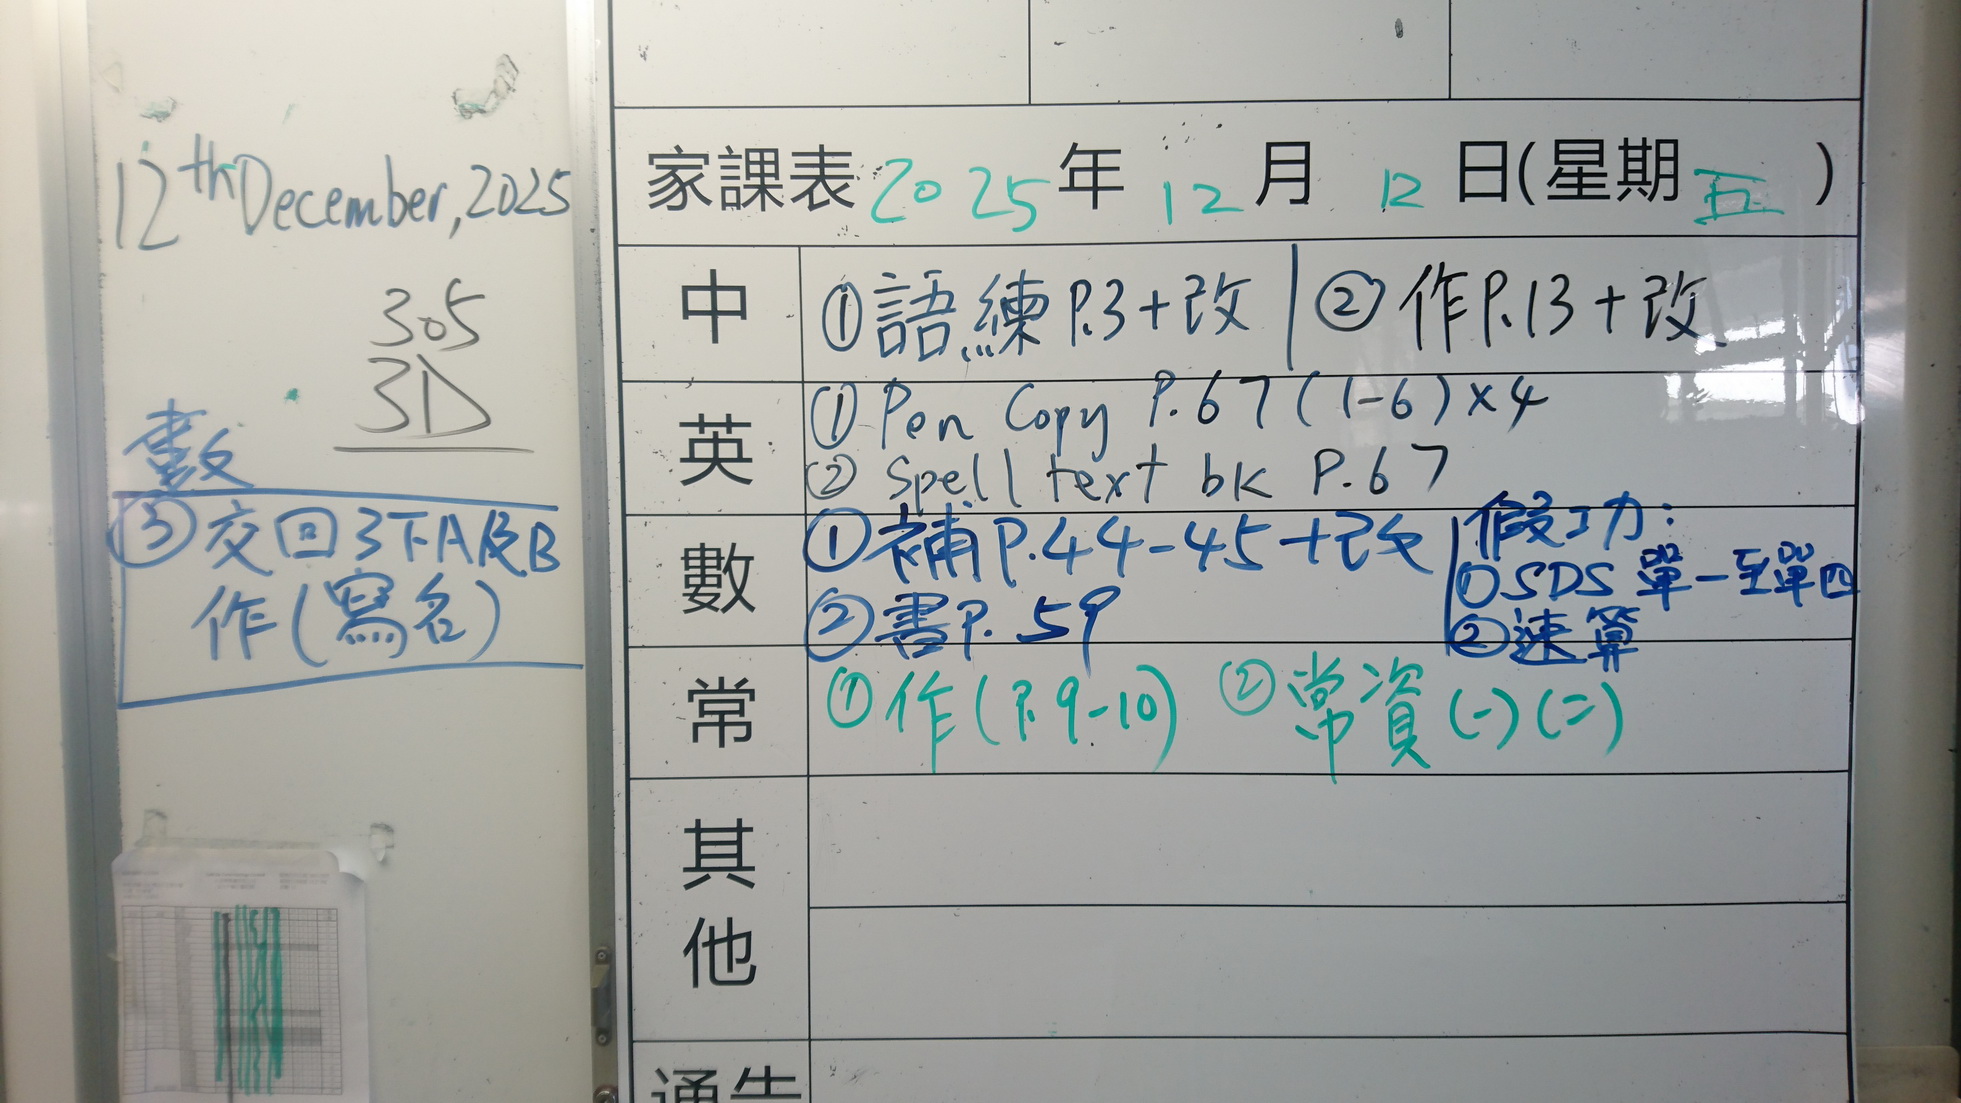 12th December, 2025
305
3D
數
③ 交回3下A及B
作(寫名)
家課表 2025 年 12 月 12 日(星期 五 )
中 ①語練P.3+改 | ② 作P.13+改
英 ① Pen Copy P.67 (1-6)×4
② Spell text bk P.67
數 ①補P.44-45+改
②書P.59
假工力:
①SDS 單一至單四
②速算
常 ①作(P.9-10) ②常資(一)(二)
其他
通告